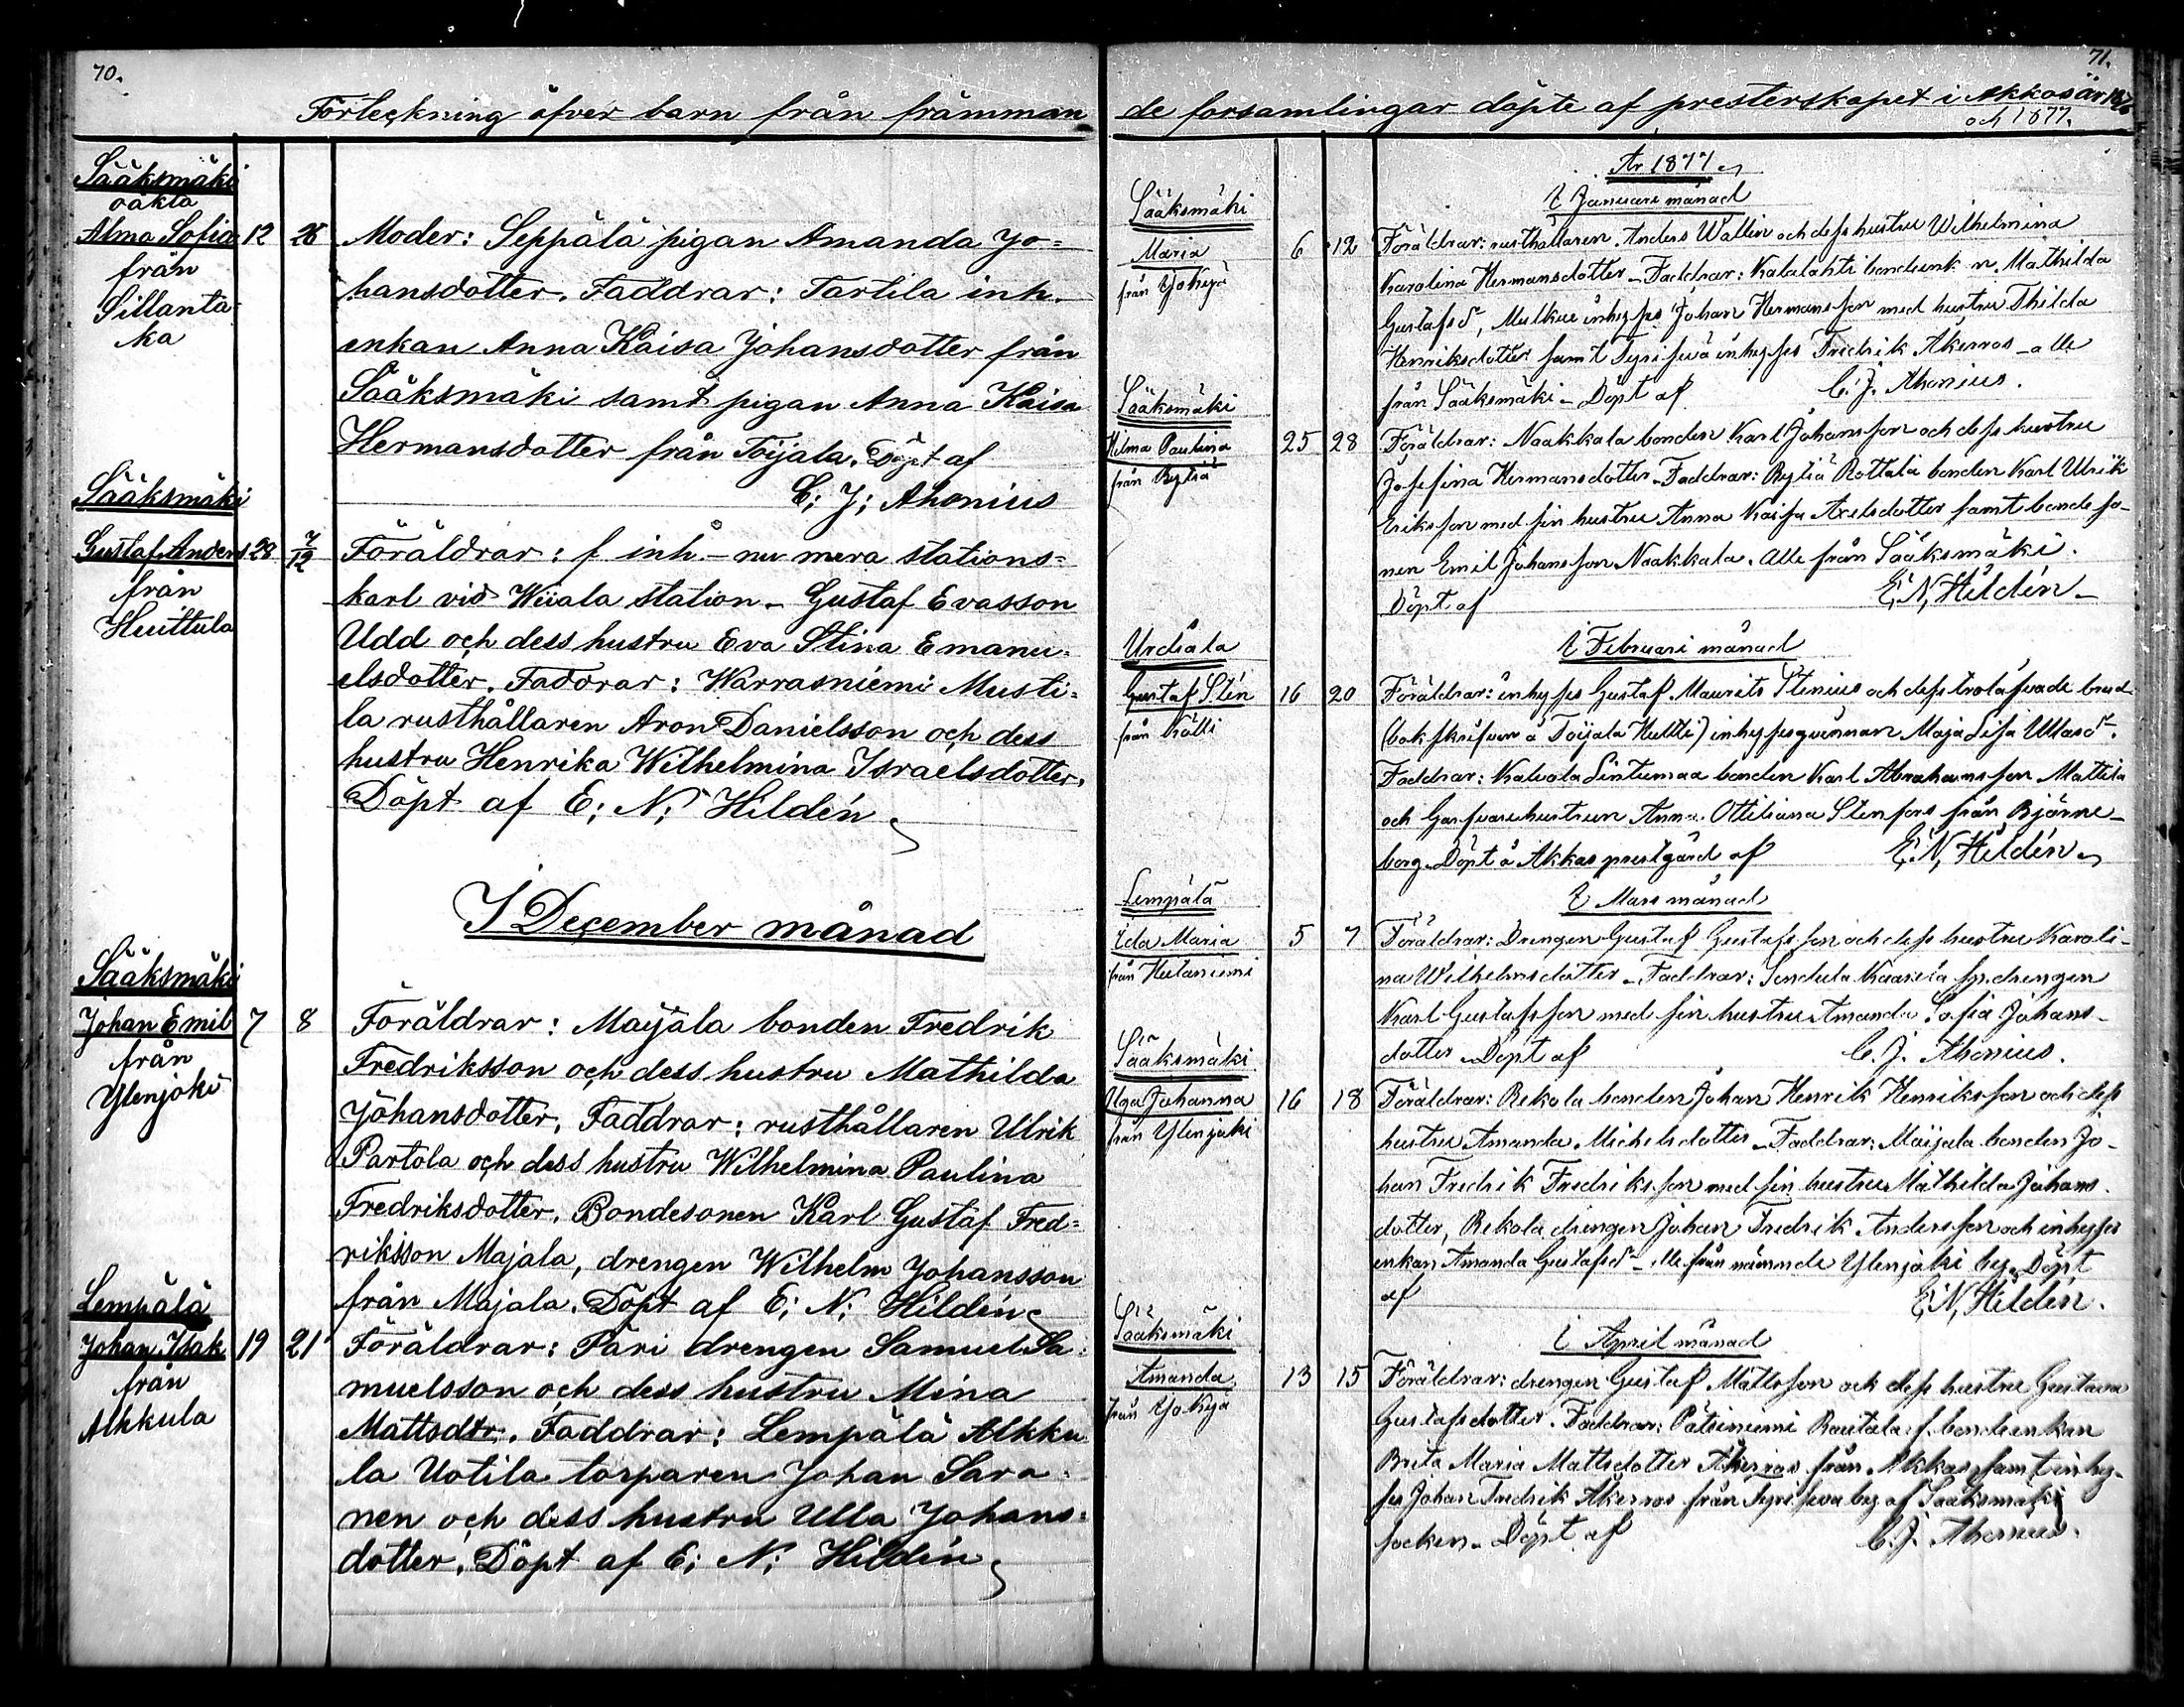 70.
Förteckning öfver barn från främman
Sääksmäki
oäkta
Alma Sofia 12 28 Moder: Seppälä pigan Amanda Jo=
från
hansdotter. Faddrar: Tartila inh.
Sillanta=
ka
enkan Anna Kaisa Johansdotter från
Sääksmäki samt pigan Anna Kaisa
Hermansdotter från Toijala. Döpt af
C; J; Ahonius
Sääksmäki
Gustaf Anders 28 7/12 Föräldrar: f inh. - nu mera stations=
från
karl vid Wiiala station - Gustaf Evasson
Huittula
Udd och dess hustru Eva Stina Emanu=
elsdotter. Faddrar: Warrasniemi Musti=
la rusthållaren Aron Danielsson och dess
hustru Henrika Wilhelmina Israelsdotter.
Döpt af E; N; Hildén
I December månad
Sääksmäki
Johan Emil 7 8 Föräldrar: Maijala bonden Fredrik
från
Fredriksson och dess hustru Mathilda
Ylenjoki
Johansdotter, Faddrar: rusthållaren Ulrik
Partola och dess hustru Wilhelmina Paulina
Fredriksdotter, Bondesonen Karl Gustaf Fred=
riksson Majala, drengen Wilhelm Johansson
från Majala. Döpt af E; N; Hildén
Lempälä
Johan Isak 19 21 Föräldrar: Päri drengen Samuel Sa=
från
muelsson och dess hustru Mina
Alkkula
Mattsdtr. Faddrar: Lempälä Alkku
la Uotila torparen Johan Sara=
nen och dess hustru Ulla Johans=
dotter. Döpt af E; N; Hildén
71.
de forsamlingar döpte af presterskapet i Akkas år 1876
och 1877.
År 1877
I Januari månad
Sääksmäki
Maria 6 12 Föräldrar: rusthållaren Anders Wallin och dess hustru Wilhelmina
från Jokyä
Karolina Hermansdotter - Faddrar: Kalalahti bondenk-n. Mathilda
Gustafsdr, Mulkue inhyses Johan Hermansson med hustru Thilda
Henriksdotter samt inhyses Fredrik Åkerros - alle
från Sääksmäki - Döpt af C. J. Ahonius.
Sääksmäki
Helma Paulina 25 28 Föräldrar: Naakkala bonden Karl Johansson och dess hustru
från Rytiä
Josefina Hermansdotter - Faddrar: Rytiä Rottala bonden Karl Ulrik
Eriksson med sin hustru Anna Kaisa Axelsdotter samt bondeso-
nen Emil Johansson Naakkala. Alle från Sääksmäki.
Döpt af E, N, Hildén -
I Februari månad
Urdiala
Gustaf Stén 16 20 Föräldrar: inhyses Gustaf Maurits Stenius och dess trolofvade brud
från Kölli
(bokskrifven å Toijala Hutti) inhysesqvinnan Maja Lisa Ullasdr.
Faddrar: Kalvola Sintumaa bonden Karl Abrahamsson Mattila
och Garfvarehustrun Anna Ottiliana Stenfors från Björne-
borg. Döpt å Akkas prestgård af E. N, Hildén
I Mars månad
Lempälä
Ida Maria 5 7 Föräldrar: Drengen Gustaf Gustafsson och dess hustru Karoli-
från Hutaniemi
na Wilhelmsdotter - Faddrar: drengen
Karl Gustafsson med sin hustru Amanda Sofia Johans-
dotter - Döpt af C. J. Ahonius.
Sääksmäki
Olga Johanna 16 18 Föräldrar: Rekola bonden Johan Henrik Henriksson och dess
från Ylenjoki
hustru Amanda Michelsdotter - Faddrar: Maijala bonden Jo-
han Fredrik Fredriksson med sin hustru Mathilda Johans-
dotter, Rekola drengen Johan Fredrik Andersson och inhyses
enkan Amanda Gustafsdr - alle från nämnde Ylenjoki by. Döpt
af E, N, Hildén.
I April månad
Sääksmäki
Amanda 13 15 Föräldrar: drengen Gustaf Mattsson och dess hustru Gustava
från Jokyä
Gustafsdotter. Faddrar: Pätsiniemi Rautala f. bondenkan
Brita Maria Mattsdotter Åkerros från Akkas samt inhy-
ses Johan Fredrik Åkerros från by af Sääksmäki
socken - Döpt af C. J. Ahonius.